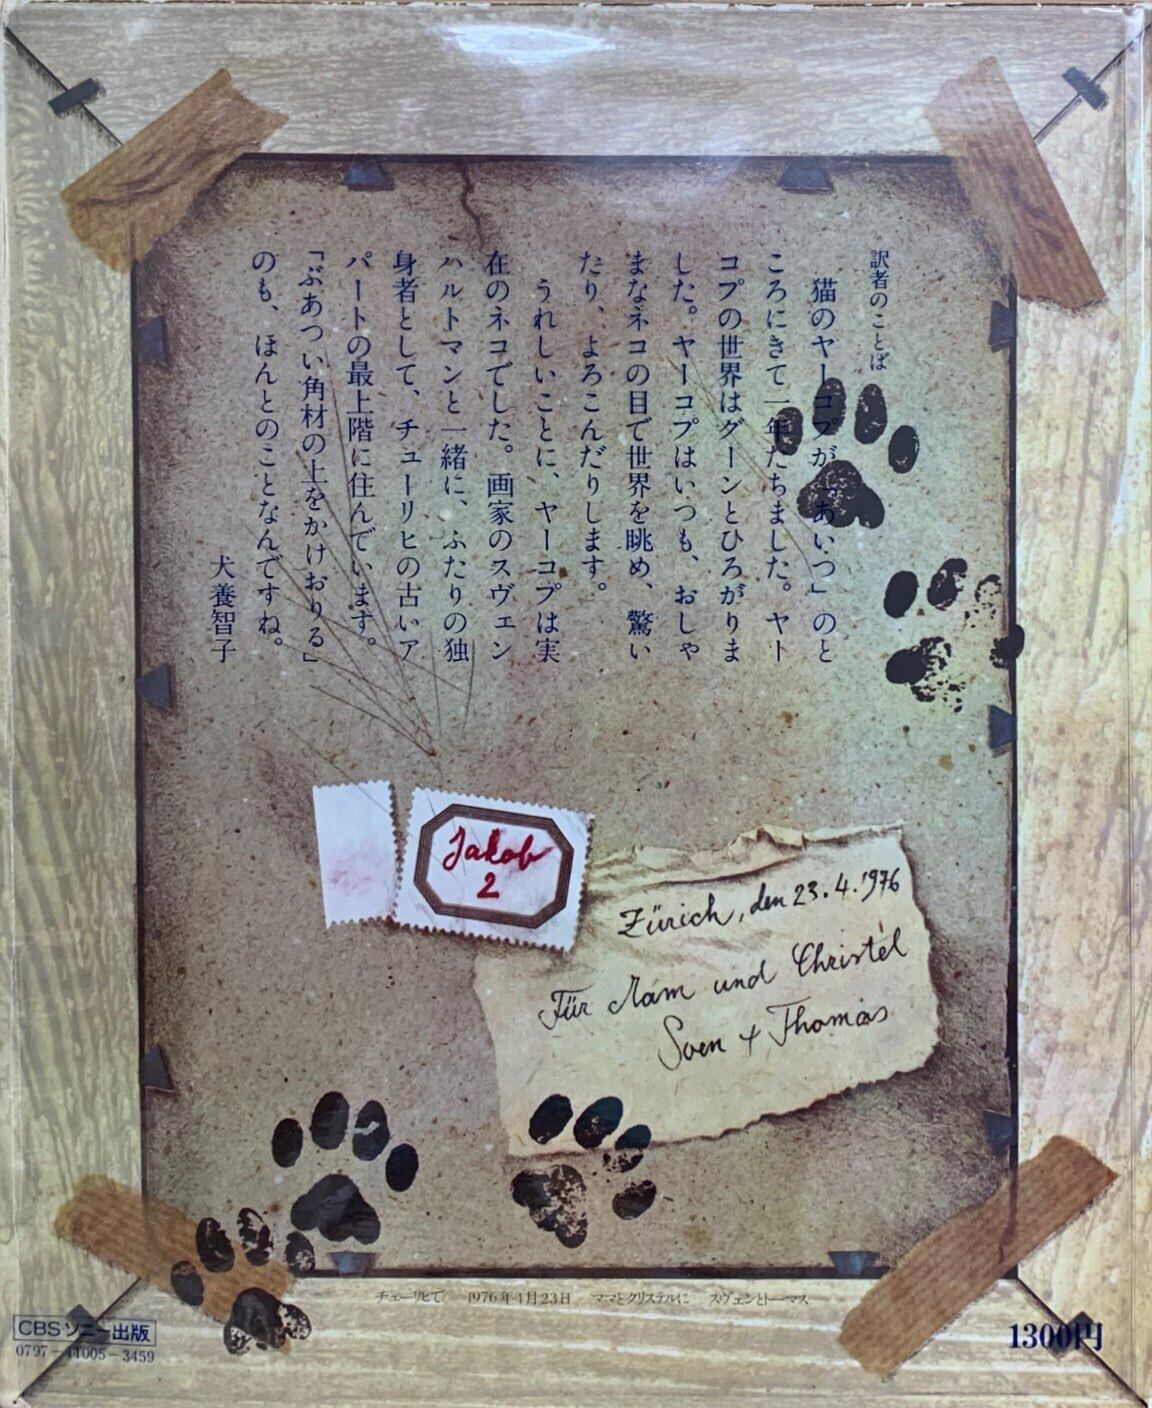 訳者のことば
猫のヤーコプが「あいつ」のと
ころにきて一年たちました。ヤー
コプの世界はグーンとひろがりま
した。ヤーコプはいつも、おしゃ
まなネコの目で世界を眺め、驚い
たり、よろこんだりします。
うれしいことに、ヤーコプは実
在のネコでした。画家のスヴェン
ハルトマンと一緒に、ふたりの独
身者として、チューリヒの古いア
パートの最上階に住んでいます。
「ぶあつい角材の上をかけおりる」
のも、ほんとのことなんですね。
犬養智子
Jakob
2
Zürich, den 23.4.1976
Für Mam und Christel
Sven + Thomas
チューリヒで 1976年4月23日 ママとクリステルに スヴェンとトーマス
CBS・ソニー出版
0797-11005-3459
1300円